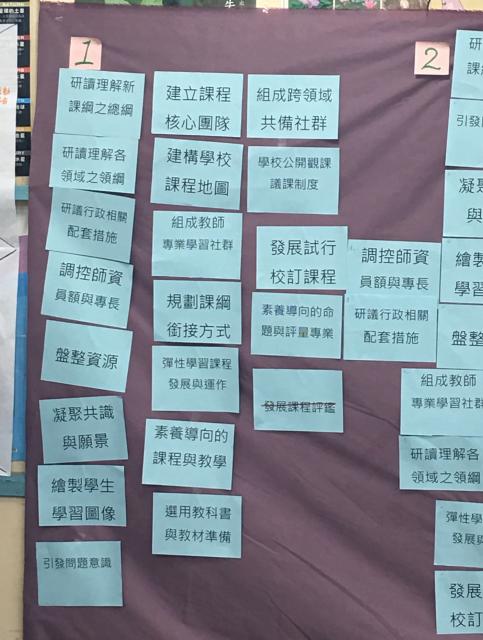 1
研讀理解新
課綱之總綱
研讀理解各
領域之領綱
研議行政相關
配套措施
調控師資
員額與專長
盤整資源
凝聚共識
與願景
繪製學生
學習圖像
引發問題意識
建立課程
核心團隊
建構學校
課程地圖
組成教師
專業學習社群
規劃課綱
銜接方式
彈性學習課程
發展與運作
素養導向的
課程與教學
選用教科書
與教材準備
組成跨領域
共備社群
學校公開觀課
議課制度
發展試行
校訂課程
素養導向的命
題與評量專業
發展課程評鑑
調控師資
員額與專長
研議行政相關
配套措施
2
研
課
引發
凝
與
繪製
學習
盤整
組成教師
專業學習社群
研讀理解各
領域之領綱
彈性學
發展與
發展
校訂